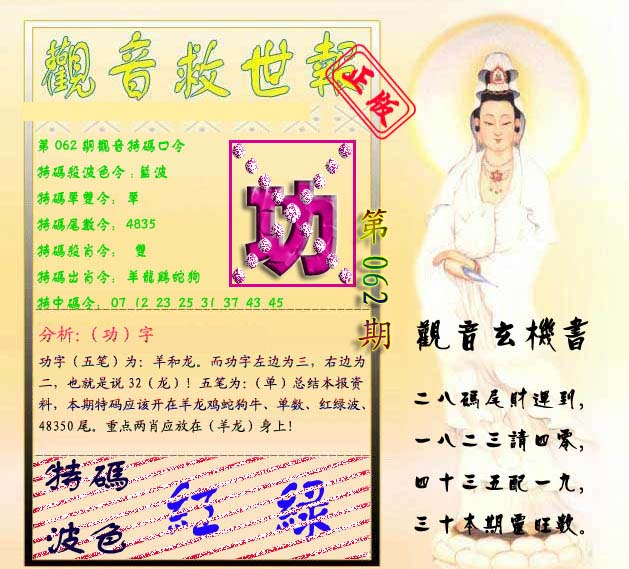 觀音救世報
正版
第062期觀音特碼口令
特碼殺波色令:藍波
特碼單雙令: 單
特碼尾數令: 4835
特碼殺肖令: 雙
特碼出肖令: 羊龍鷄蛇狗
特中碼令: 07 12 23 25 31 37 43 45
功
第062期
分析:（功）字
功字（五笔）为：羊和龙。而功字左边为三，右边为
二，也就是说32（龙）！五笔为：（单）总结本报资
料，本期特码应该开在羊龙鸡蛇狗牛、单数、红绿波、
48350尾。重点两肖应放在（羊龙）身上！
特碼
波色
紅 綠
觀音玄機書
二八碼尾財運到，
一八二三請四零，
四十三五配一九，
三十本期靈旺数。